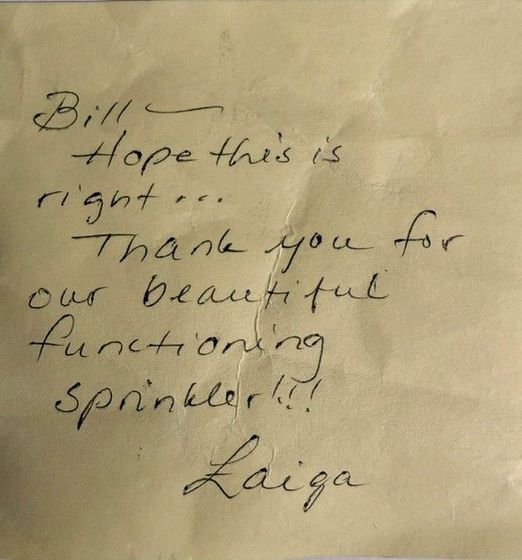 Bill —
Hope this is
right...
Thank you for
our beautiful
functioning
sprinkler!!!
Laiga